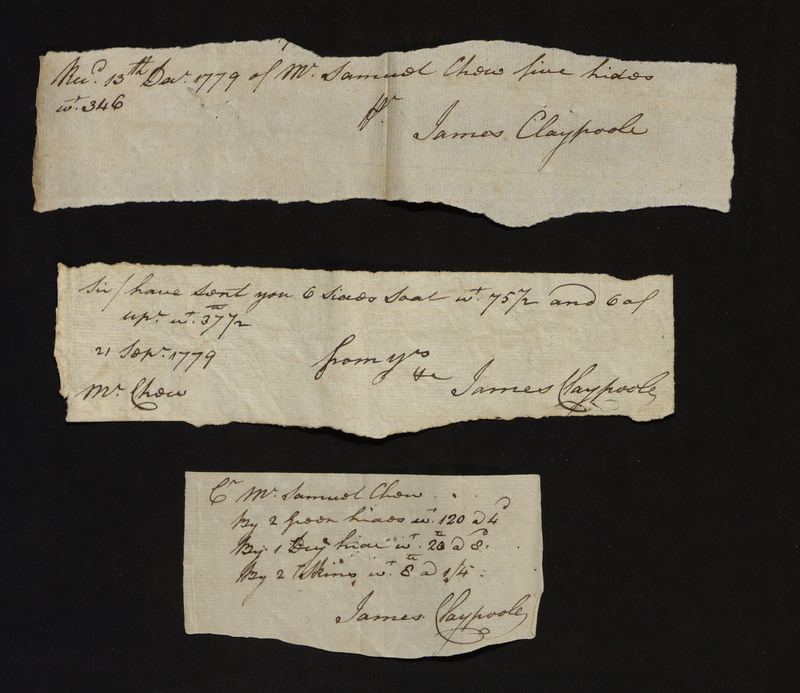 Recd. 13th Decr. 1779 of Mr. Samuel Chew five hides
wt. 346
pr
James Claypoole
Sir/ have sent you 6 sides Soal wt. 75 1/2 and 6 of
upr. wt. 37 1/2
21 Sepr. 1779
from yrs
&c
Mr. Chew
James Claypoole
Cr Mr. Samuel Chew
By 2 Green hides wt. 120 a 4d
By 1 Dry hide wt. 28 a 8.
By 2 Skins wt. 8 a 1/4.
James Claypoole